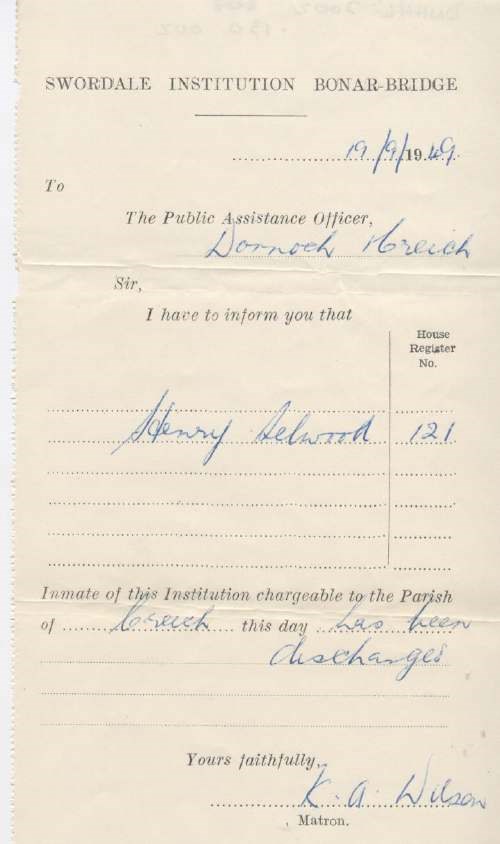 SWORDALE INSTITUTION BONAR-BRIDGE
19/9/1949.
To
The Public Assistance Officer,
Dornoch & Creich
Sir,
I have to inform you that
House
Register
No.
Henry Selwood 121
Inmate of this Institution chargeable to the Parish
of Creich this day has been
discharged
Yours faithfully,
K. A. Wilson
Matron.